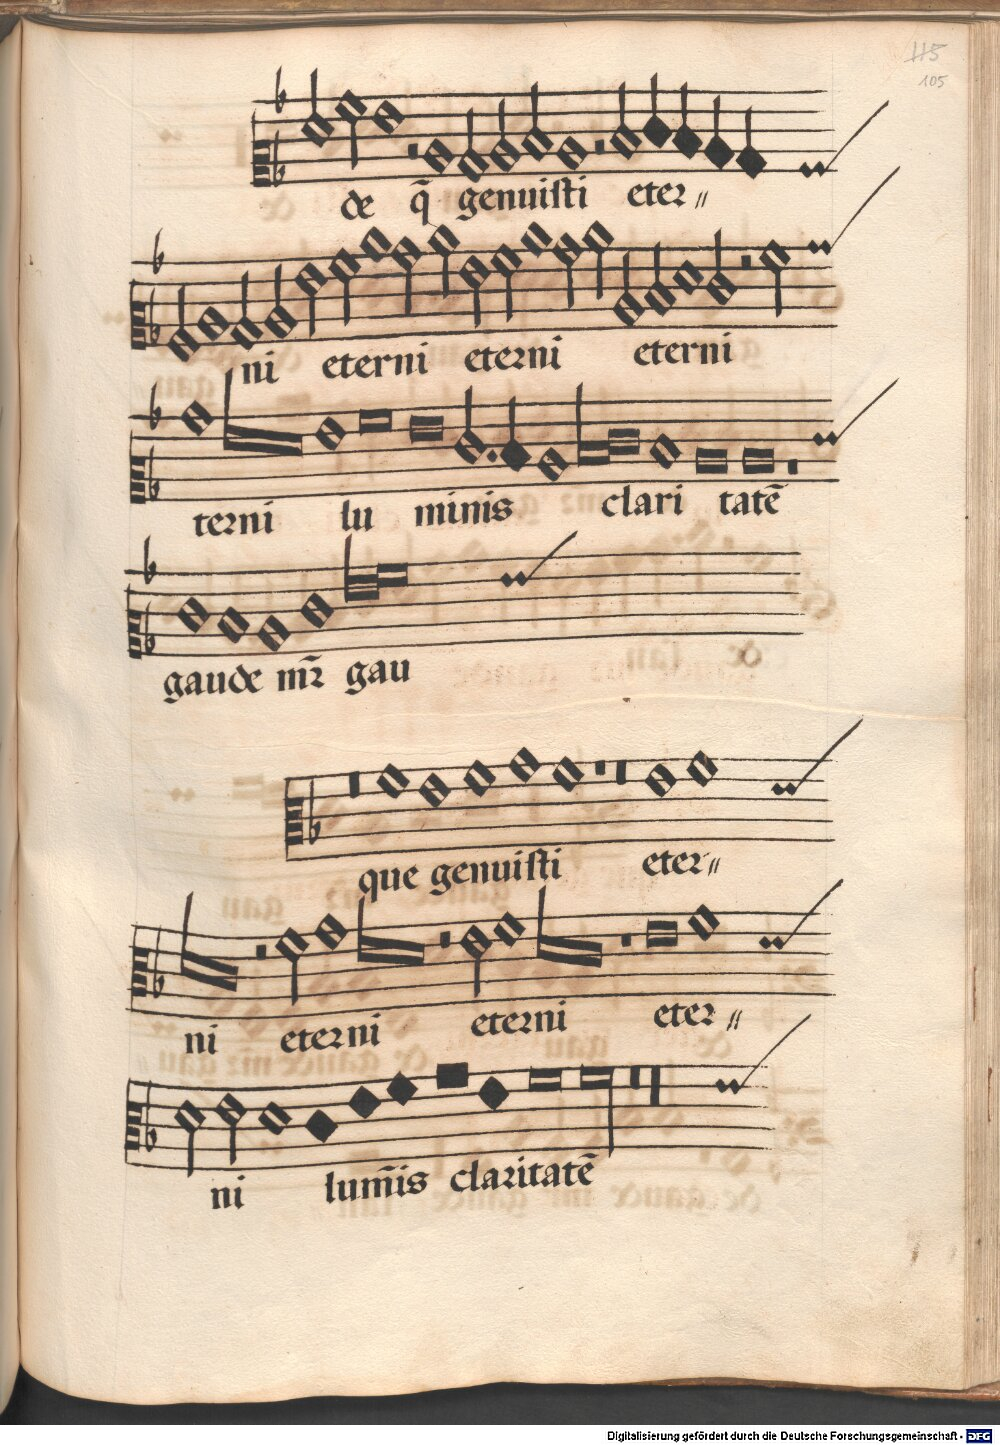 115
105
de q̄ genuisti eter〃
ni eterni eterni eterni
terni lu minis clari tatē
gaude mr̄ gau
que genuisti eter〃
ni eterni eterni eter〃
ni lum̄is claritatē
Digitalisierung gefördert durch die Deutsche Forschungsgemeinschaft - DFG